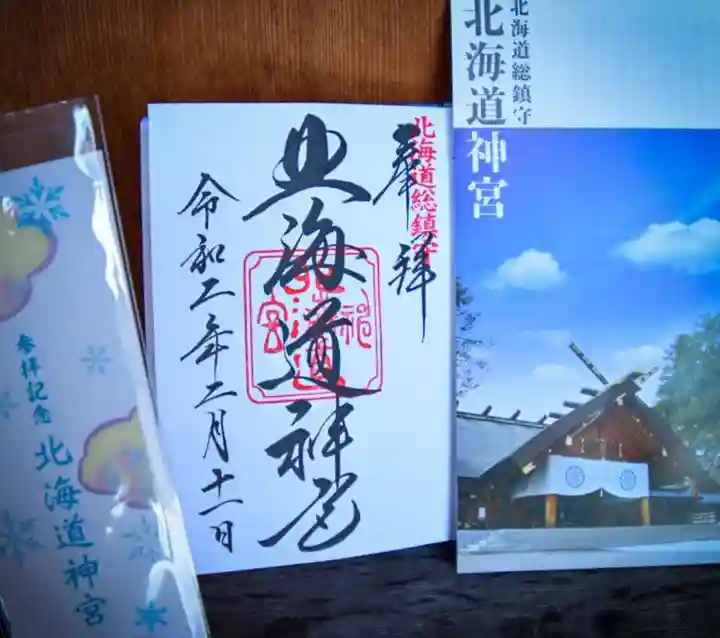 北海道総鎮守
北海道神宮
北海道総鎮守
奉拝
北海道神宮
令和二年二月十一日
参拝記念
北海道神宮